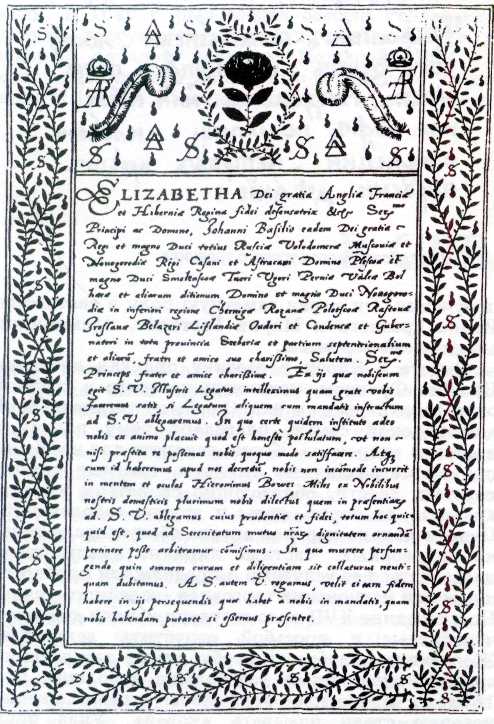 ELIZABETHA Dei gratia Angliæ Franciæ
et Hiberniæ Regina fidei defensatrix &c. Ser.mo
Principi ac Domino, Johanni Basilio eadem Dei gratia
Regi et magno Duci totius Rusciæ Volodomeræ Moscouiæ et
Nouogorodiæ Regi Casani et Astracani Domino et
magno Duci Smolkoscoæ Tueri Vgori Permiæ Bol
haræ et aliarum ditionum Domino et magno Duci Nouogoro-
diæ in inferiori regione Chernigæ Rozanæ Polotscoæ Rastouæ
Belazeri Liflandiæ Oudori et Condenæ et Guber-
natori in tota prouincia Seebariæ et partium septentrionalium
et aliarū, fratri et amico suo charissimo, Salutem. Ser.me
Princeps frater et amice charissime. Ex ijs quæ nobiscum
egit S. V. Illustris Legatus intelleximus quam grate vobis
faceremus satis si Legatum aliquem cum mandatis instructum
ad S. V. ablegaremus. In quo certe quidem instituto adeo
nobis ex animo placuit quod est honeste postulatum, vt non
nisi præstita re possemus nobis quoquo modo satisfacere. Atq
cum id haberemus apud nos decretū, nobis non incōmode incurrit
in mentem et oculos Hieronimus Bowes Miles ex Nobilibus
nostris domesticis plurimum nobis dilectus quem in præsentia
ad. S. V. ablegamus cuius prudentiæ et fidei, totum hoc quic
quid est, quod ad Serenitatum mutuo nr̄as dignitatem ornandā
pertinere posse arbitramur cōmisimus. In quo munere perfun-
gendo quin omnem curam et diligentiam sit collaturus neuti-
quam dubitamus. A S. autem V. rogamus, velit ei eam fidem
habere in ijs persequendis quæ habet a nobis in mandatis, quam
nobis habendam putaret si essemus præsentes.